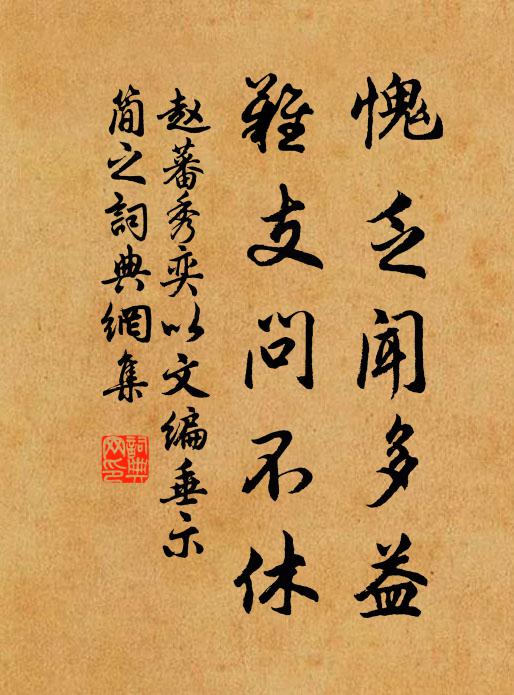 愧乏闻多益
难支问不休
赵蕃秀奕以文编垂示
简之詞典網集
詞典
网印